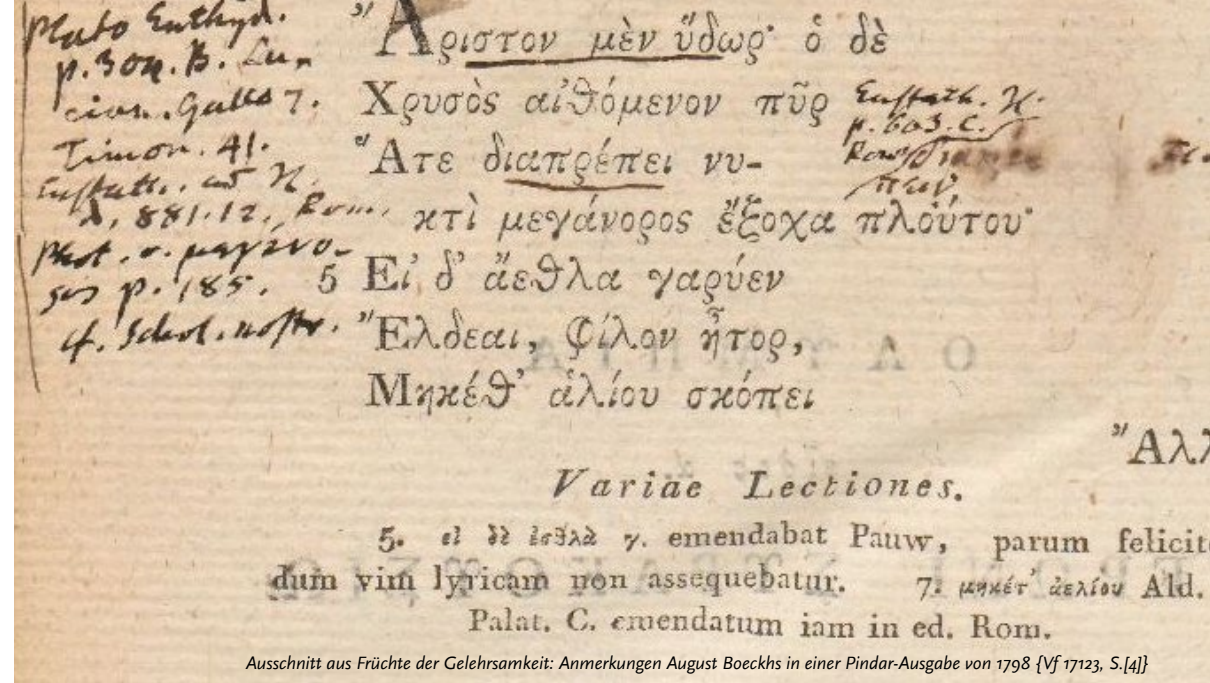 Plato Euthyd.
p. 304. B. Lu-
cian. Gallo 7.
Timon. 41.
Eustath. ad Il.
λ, 881.12. Rom.
Phot. v. μεγάνο-
p. 185.
cf. Schol. nostr.
Ἄριστον μὲν ὕδωρ· ὁ δὲ
Χρυσὸς αἰθόμενον πῦρ
Eustath. Il.
p. 603. C.
Rom.
Ἅτε διαπρέπει νυ-
κτὶ μεγάνορος ἔξοχα πλούτου·
5 Εἰ δ' ἄεθλα γαρύεν
Ἔλδεαι, φίλον ἦτορ,
Μηκέθ' ἁλίου σκόπει
Ἄλλ
Variae Lectiones.
5. εἰ δὲ ἐσθλὰ γ. emendabat Pauw, parum felicite
dum vim lyricam non assequebatur. 7. μηκέτ' ἀελίου Ald.
Palat. C. emendatum iam in ed. Rom.
Ausschnitt aus Früchte der Gelehrsamkeit: Anmerkungen August Boeckhs in einer Pindar-Ausgabe von 1798 {Vf 17123, S.[4]}